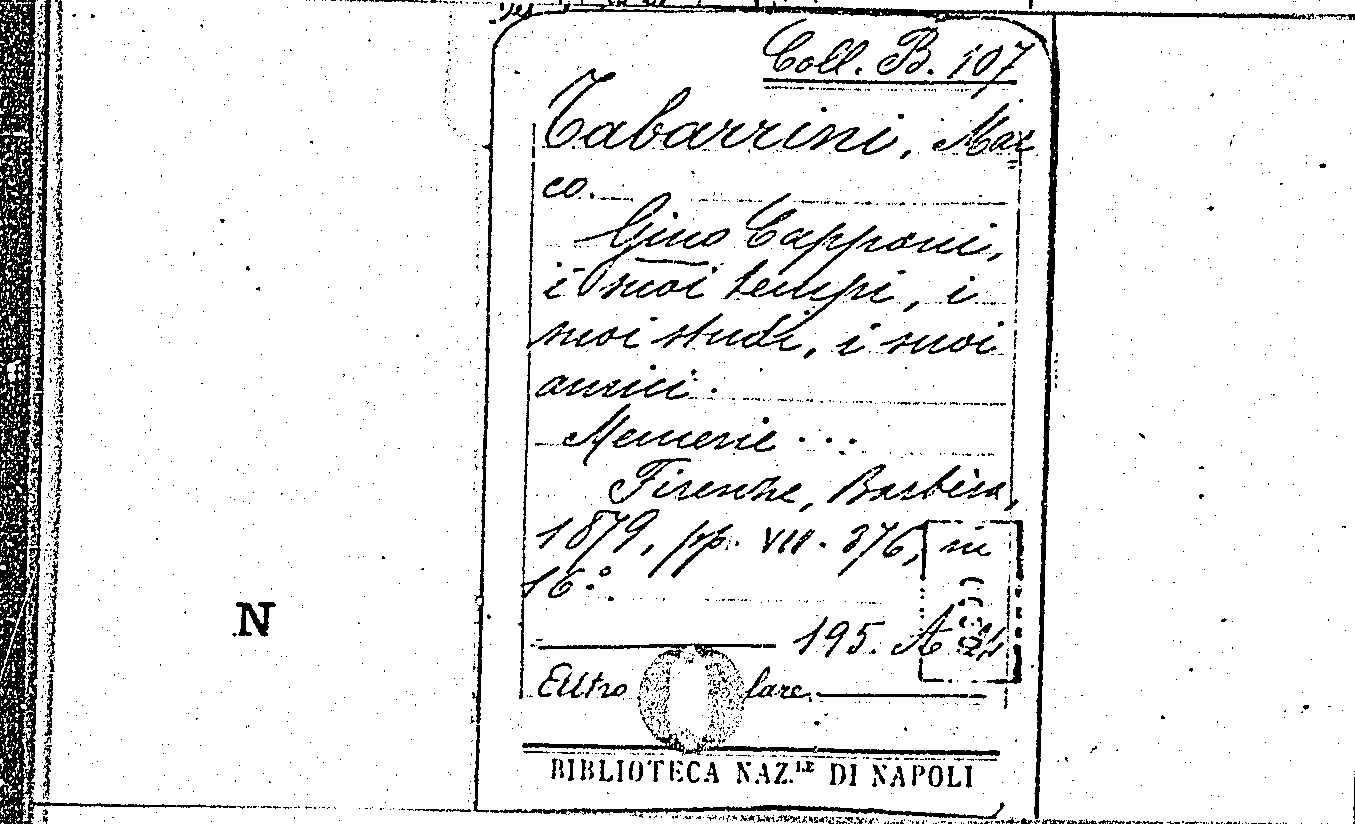 Coll. B. 107
Tabarrini, Mar=
co.
Gino Capponi,
i suoi tempi, i
suoi studi, i suoi
amici.
Memorie ...
Firenze, Barbèra,
1879, pp. VII-376, in
16.°
195. A
Altro lare.
N
BIBLIOTECA NAZ.LE DI NAPOLI